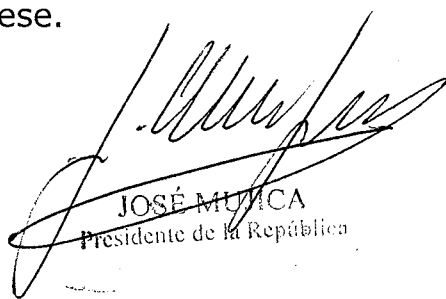 ese.
JOSÉ MUJICA
Presidente de la República